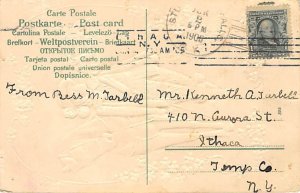 Carte Postale
Postkarte — Post card
Cartolina Postale — Levelező-Lap
Brefkort — Weltpostverein — Briefkaart
ОТКРЫТОЕ ПИСЬМО
Tarjeta postal — Dopisnice
Union postale universelle
Dopisnice.
ITHACA
N.Y.
AM
1908
6 PM
From Bess M. Tarbell
Mr. Kenneth A. Tarbell
410 N. Aurora St.
Ithaca
Tomp. Co.
N.Y.